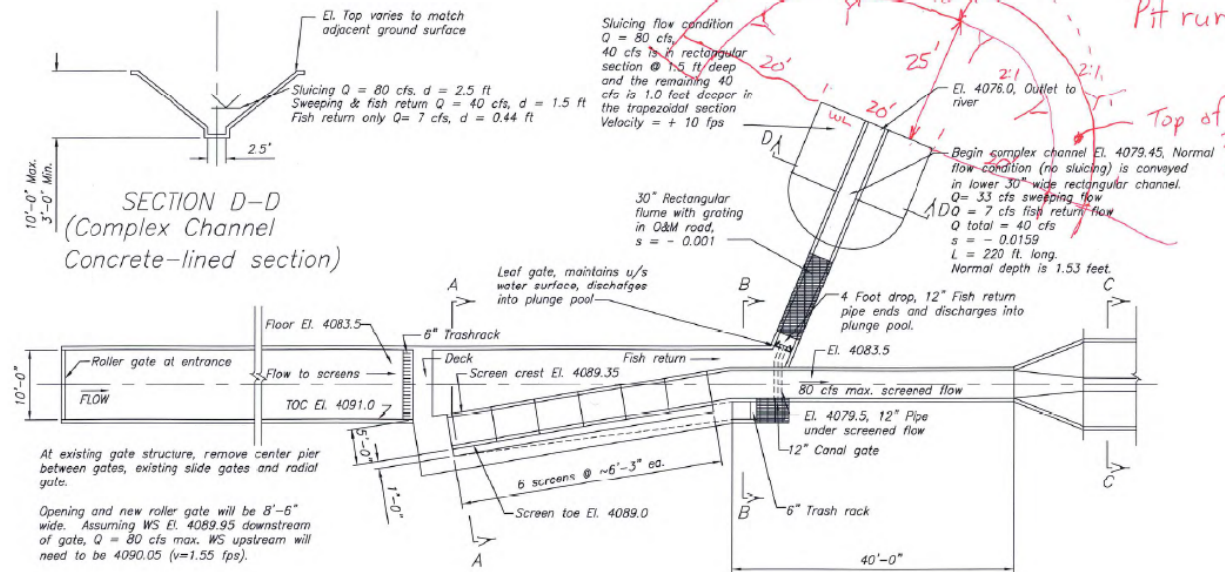 El. Top varies to match
adjacent ground surface
Sluicing Q = 80 cfs, d = 2.5 ft
Sweeping & fish return Q = 40 cfs, d = 1.5 ft
Fish return only Q= 7 cfs, d = 0.44 ft
2.5'
10'-0" Max.
3'-0" Min.
SECTION D-D
(Complex Channel
Concrete-lined section)
Sluicing flow condition
Q = 80 cfs,
40 cfs is in rectangular
section @ 1.5 ft deep
and the remaining 40
cfs is 1.0 feet deeper in
the trapezoidal section
Velocity = + 10 fps
20'
25'
2:1
2:1
Pit run
Top of
20'
20'
WL
El. 4076.0, Outlet to
river
D
D
Begin complex channel El. 4079.45, Normal
flow condition (no sluicing) is conveyed
in lower 30" wide rectangular channel.
Q= 33 cfs sweeping flow
Q = 7 cfs fish return flow
Q total = 40 cfs
s = - 0.0159
L = 220 ft. long.
Normal depth is 1.53 feet.
30" Rectangular
flume with grating
in O&M road,
s = - 0.001
Leaf gate, maintains u/s
water surface, discharges
into plunge pool
A
B
C
4 Foot drop, 12" Fish return
pipe ends and discharges into
plunge pool.
Floor El. 4083.5
6" Trashrack
Deck
Fish return
El. 4083.5
Roller gate at entrance
Flow to screens
Screen crest El. 4089.35
10'-0"
FLOW
80 cfs max. screened flow
TOC El. 4091.0
El. 4079.5, 12" Pipe
under screened flow
12" Canal gate
5'-0"
1'-0"
6 screens @ ~6'-3" ea.
At existing gate structure, remove center pier
between gates, existing slide gates and radial
gate.
Screen toe El. 4089.0
6" Trash rack
A
B
C
Opening and new roller gate will be 8'-6"
wide. Assuming WS El. 4089.95 downstream
of gate, Q = 80 cfs max. WS upstream will
need to be 4090.05 (v=1.55 fps).
40'-0"